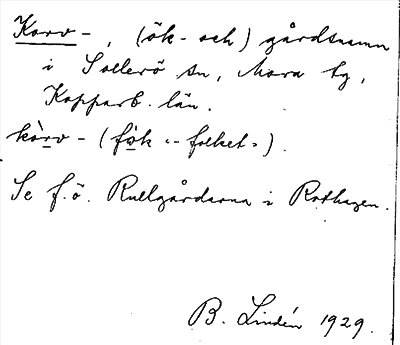 Korv-, (ök- och) gårdsnamn
i Sollerö sn, Mora tg,
Kopparb. län.
kòrv- (fòk "-folket").
Se f.ö. Rullgårdarna i Rothagen.
B. Lindén 1929.